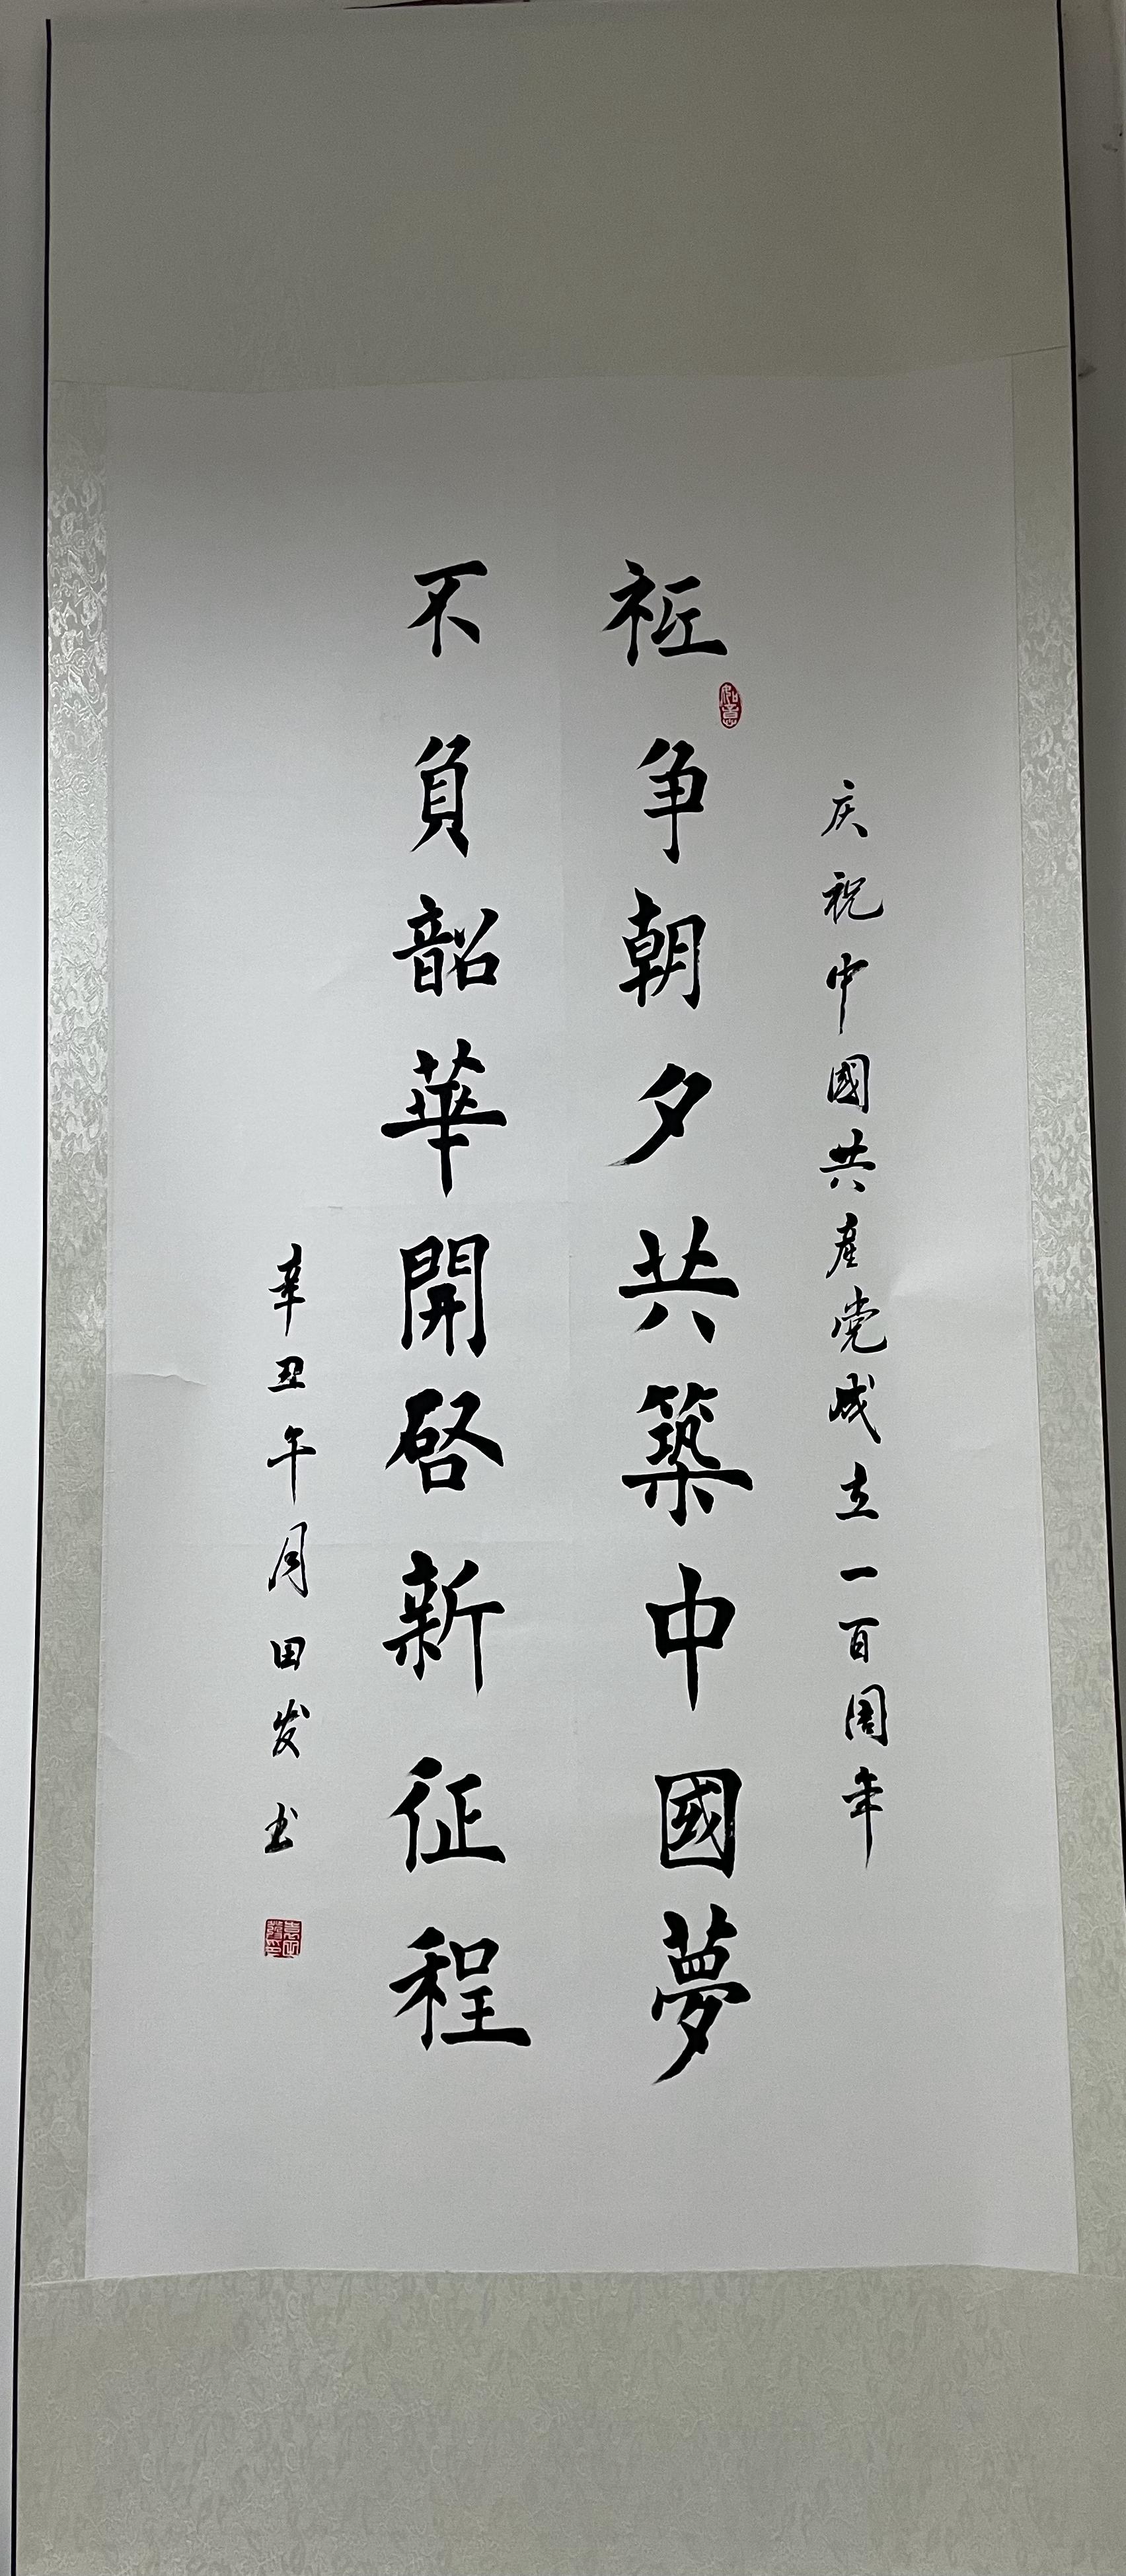 庆祝中國共產党成立一百周年
祗争朝夕共築中國夢
如意
不負韶華開啓新征程
辛丑午月田发书